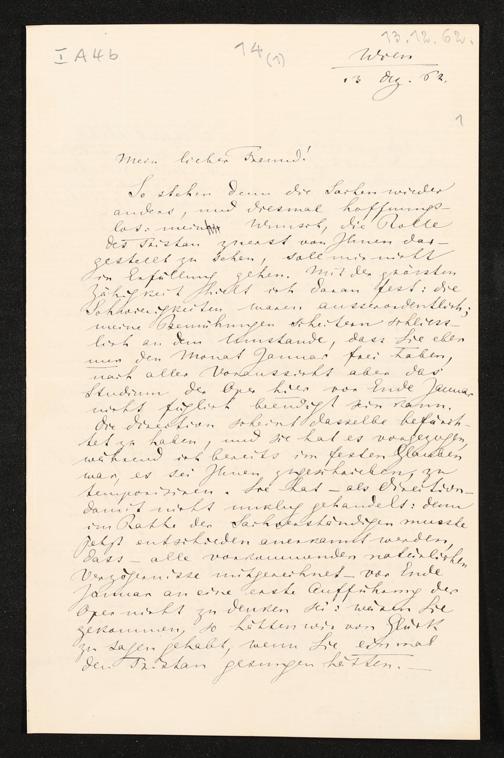 I A4b
14
(1)
13.12.62.
Wien
13 Dez. 62.
1
Mein lieber Freund!
So stehen denn die Sachen wieder
anders, und diesmal hoffnungs-
los: mein Wunsch, die Rolle
des Tristan zuerst von Ihnen dar-
gestellt zu sehen, soll mir nicht
in Erfüllung gehen. Mit der grössten
Zähigkeit hielt ich daran fest: die
Schwierigkeiten waren ausserordentlich;
meine Bemühungen scheitern schliess-
lich an dem Umstande, dass Sie eben
nur den Monat Januar frei haben,
nach aller Voraussicht aber das
Studium der Oper hier vor Ende Januar
nicht füglich beendigt sein kann.
Die Direktion scheint dasselbe befürch-
tet zu haben, und sie hat es vorgezogen,
während ich bereits im festen Glauben
war, es sei Ihnen zugeschrieben, zu
temporisiren. Sie hat – als Direction –
damit nicht unklug gehandelt: denn
im Rathe der Sachverständigen musste
jetzt entschieden anerkannt werden,
dass – alle vorkommenden natürlichen
Verzögernisse mitgerechnet – vor Ende
Januar an eine erste Aufführung der
Oper nicht zu denken sei: wären Sie
gekommen, so hätten wir von Glück
zu sagen gehabt, wenn Sie einmal
den Tristan gesungen hätten. —